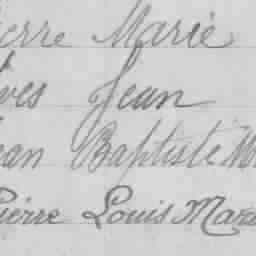 ierre Marie
ves Jean
ean Baptiste M
Pierre Louis Mar